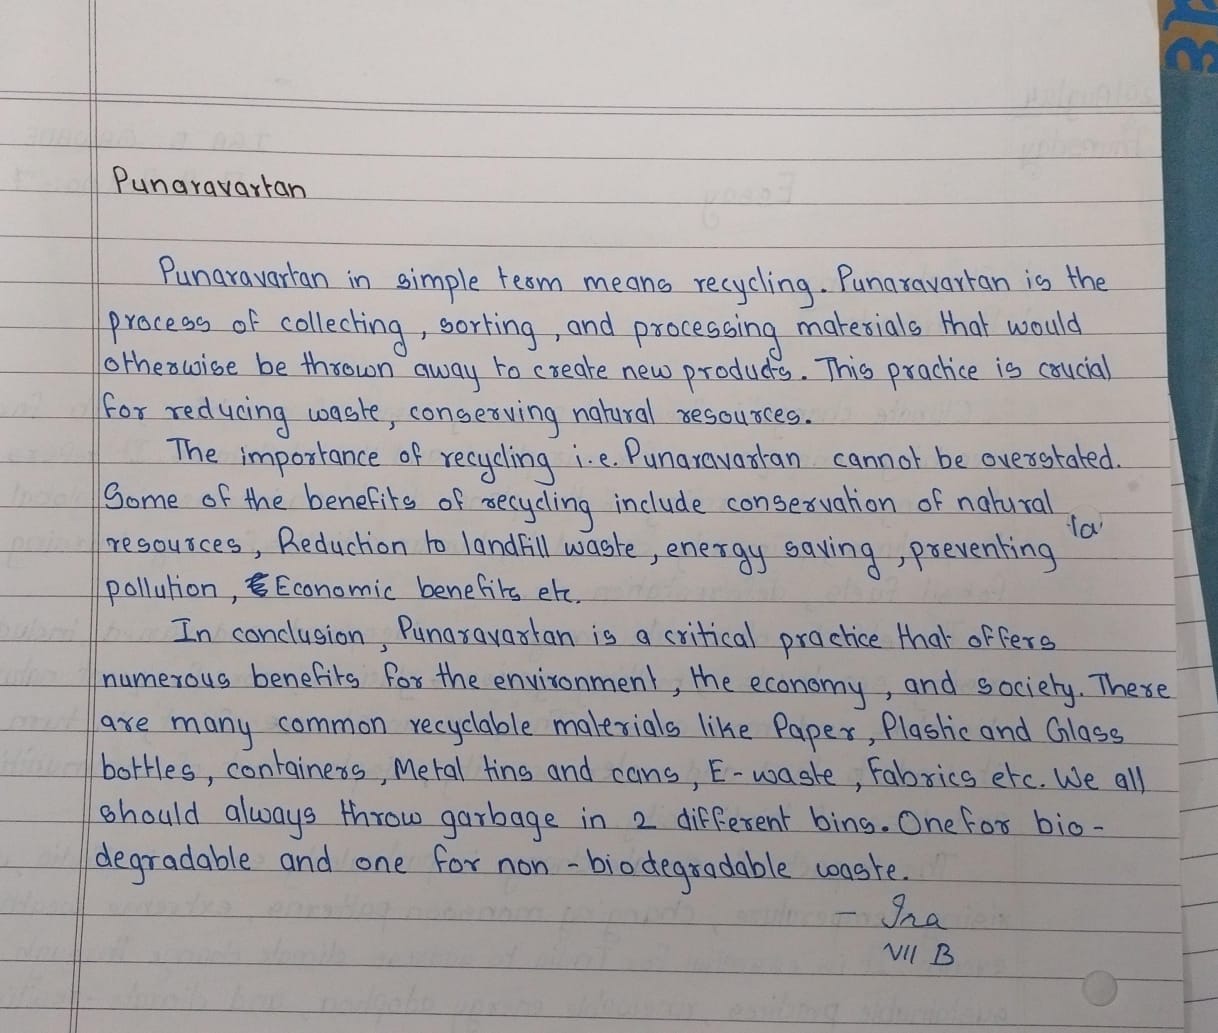 Punaravartan
Punaravartan in simple term means recycling. Punaravartan is the
process of collecting, sorting, and processing materials that would
otherwise be thrown away to create new products. This practice is crucial
for reducing waste, conserving natural resources.
The importance of recycling i.e. Punaravartan cannot be overstated.
Some of the benefits of recycling include conservation of natural
resources, Reduction to landfill waste, energy saving, preventing
pollution, Economic benefits etc.
In conclusion, Punaravartan is a critical practice that offers
numerous benefits for the environment, the economy, and society. There
are many common recyclable materials like Paper, Plastic and Glass
bottles, containers, Metal tins and cans, E-waste, Fabrics etc. We all
should always throw garbage in 2 different bins. One for bio-
degradable and one for non-biodegradable waste.
- Ira
VII B